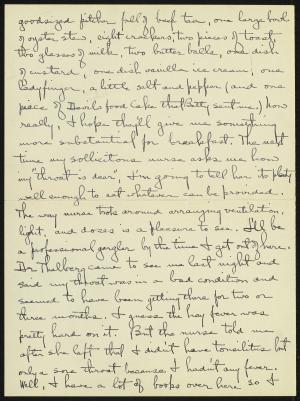 goodsized pitcher full of beef tea, one large bowl
of oyster stew, eight crackers, two pieces of toast,
two glasses of milk, two butter balls, one dish
of custard, one dish vanilla ice cream, one
ladyfinger, a little salt and pepper (and one
piece of Devils food cake that Betty sent me.) now
really, I hope they'll give me something
more substantial for breakfast. The next
time my sollicitous nurse asks me how
my "throat is dear", I'm going to tell her its plenty
well enough to eat whatever can be provided.
The way nurse trots around arranging ventilation,
light, and doses is a pleasure to see. I'll be
a professional gargler by the time I get out of here.
Dr Thelberg came to see me last night and
said my throat was in a bad condition and
seemed to have been getting there for two or
three months. I guess the hay fever was
pretty hard on it. But the nurse told me
after she left that I didn't have tonsilitis but
only a sore throat because I hadn't any fever.
Well, I have a lot of books over here so I